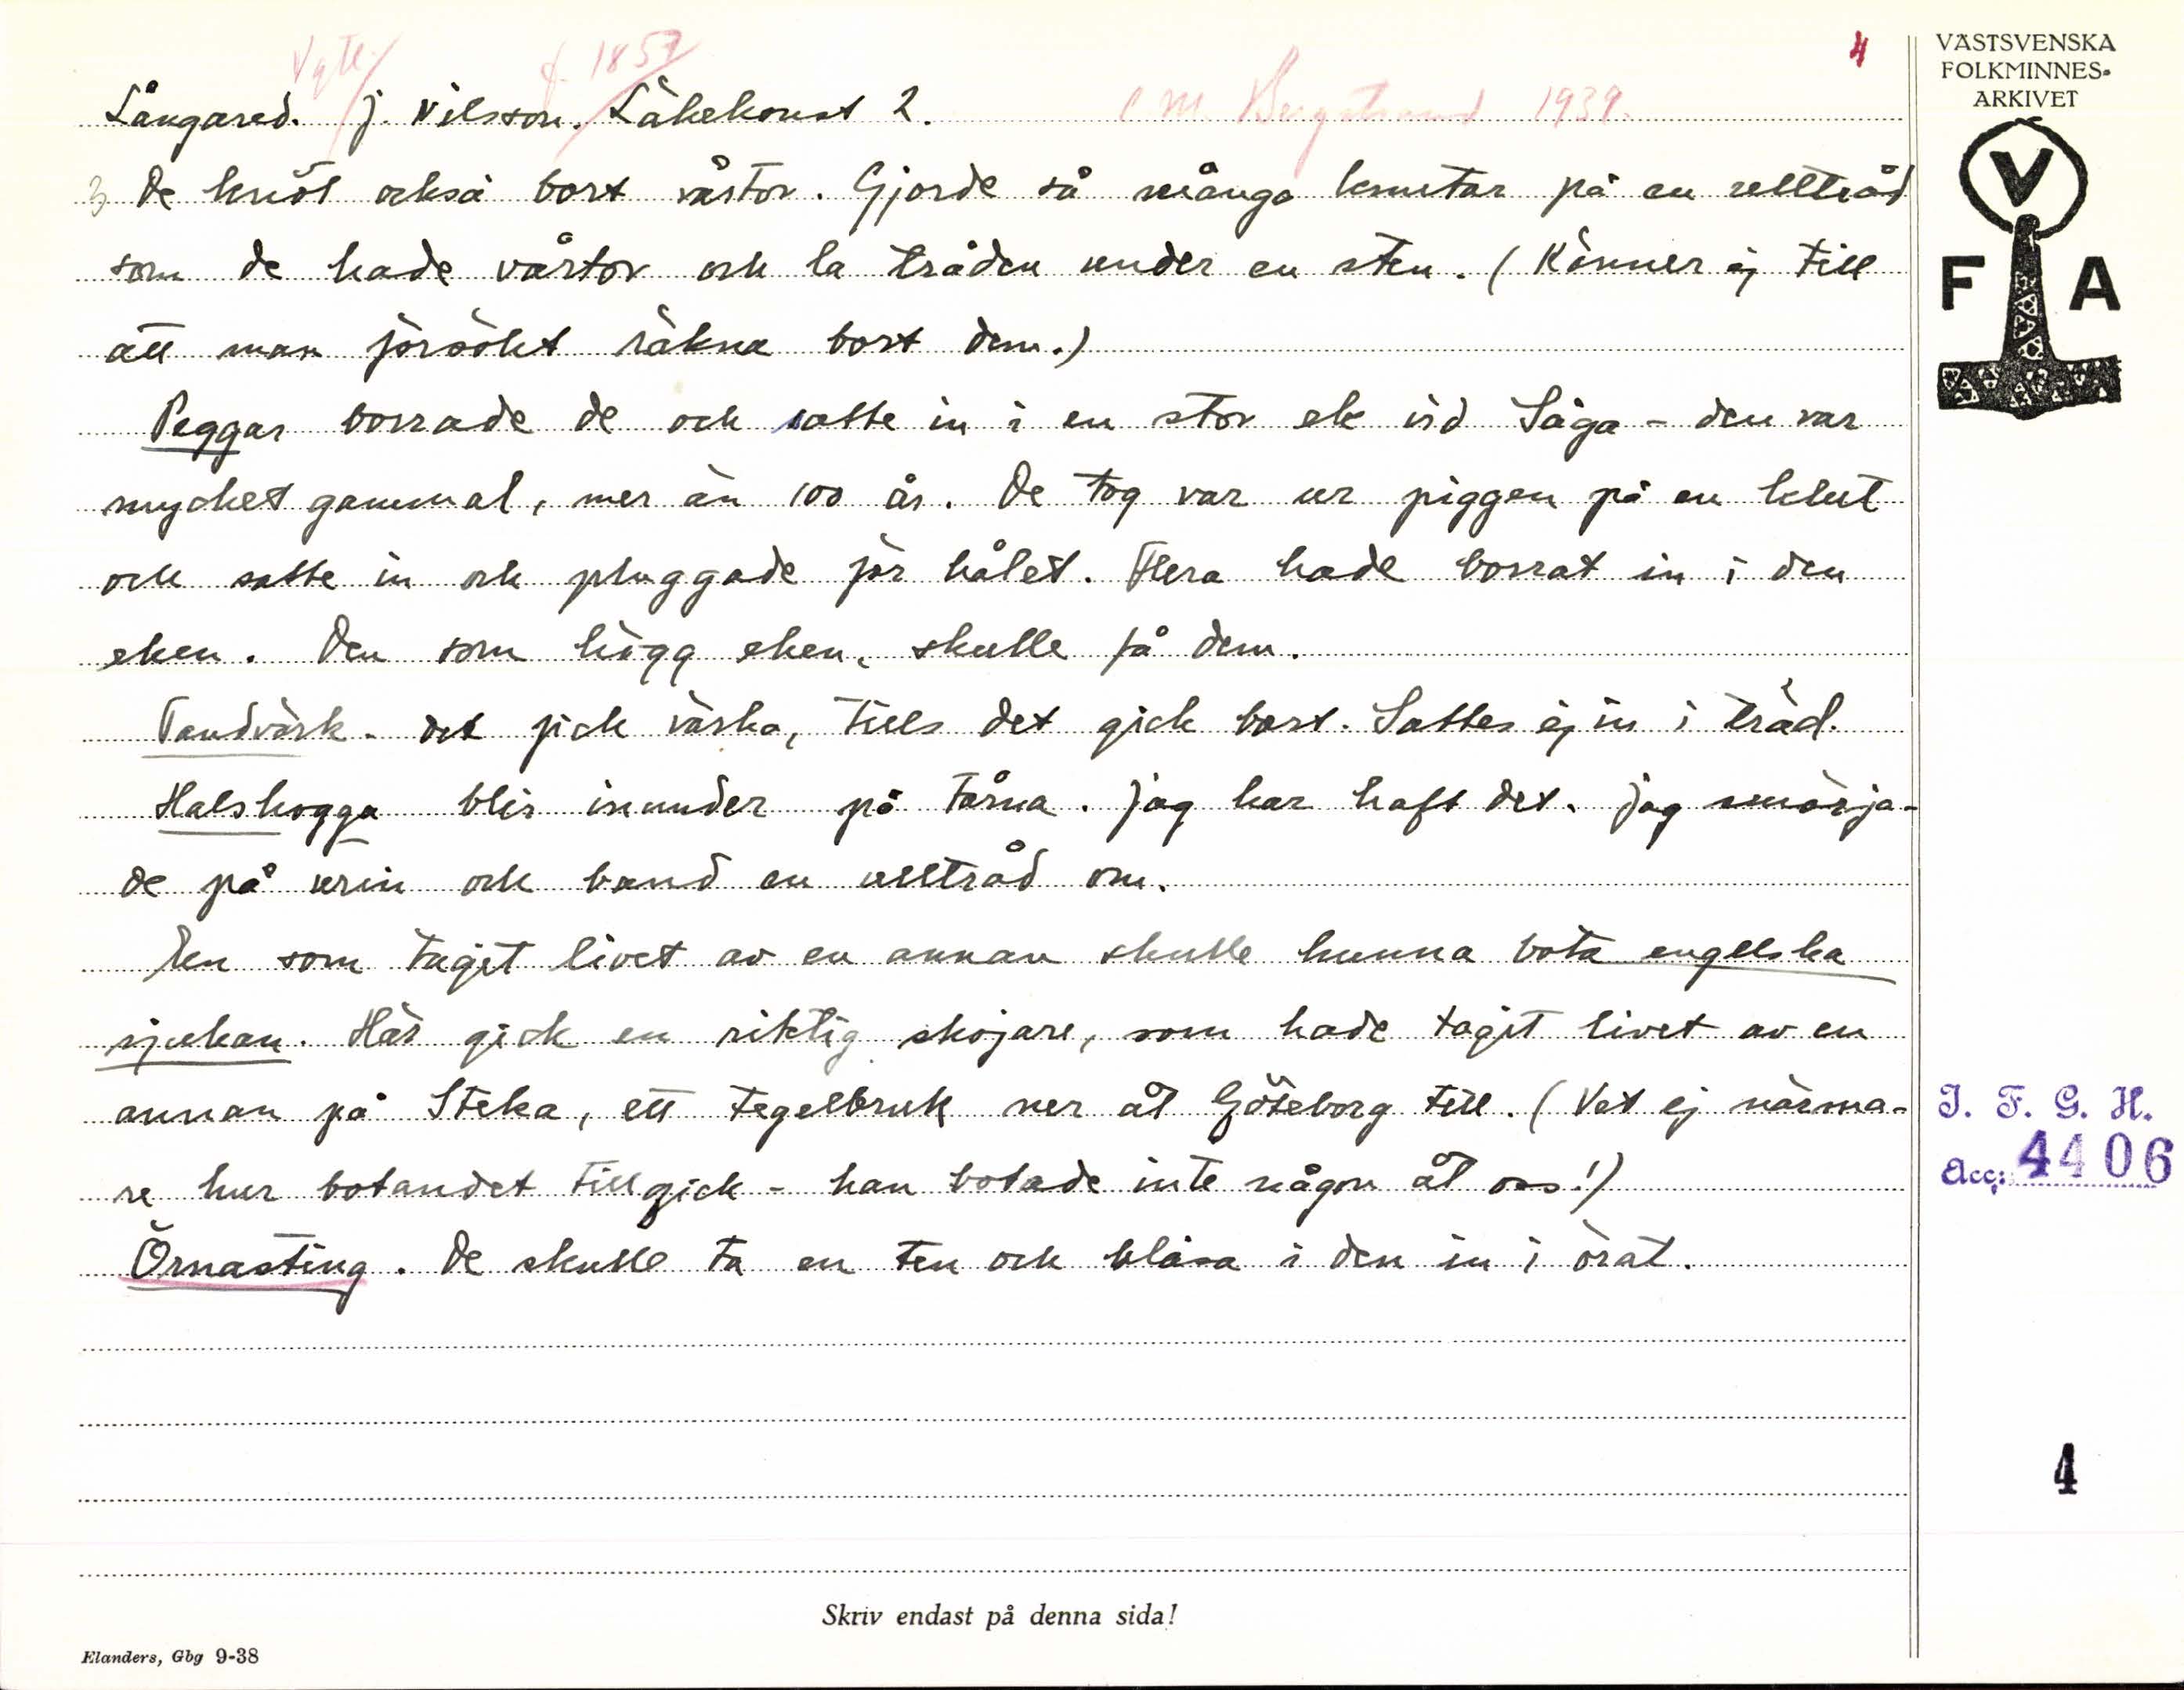 Vgtl. f. 1857 4
Långared. J. Nilsson. Läkekonst 2. C M Bergstrand 1939.
3 De knöt också bort vårtor. Gjorde så många knutar på en ulltråd
som de hade vårtor och la tråden under en sten. (Känner ej till
att man försökt räkna bort dem.)
Peggar borrade de och satte in i en stor ek vid Såga - den var
mycket gammal, mer än 100 år. De tog var ur piggen på en klut
och satte in och pluggade för hålet. Flera hade borrat in i den
eken. Den som högg eken, skulle få dem.
Tandvärk - det fick värka, tills det gick bort. Sattes ej in i träd.
Halshogga blir inunder på tårna. Jag har haft det. Jag smörja-
de på urin och band en ulltråd om.
En som tagit livet av en annan skulle kunna bota engelska
sjukan. Här gick en riktig skojare, som hade tagit livet av en
annan på Steka, ett tegelbruk ner åt Göteborg till. (Vet ej närma-
re hur botandet tillgick - han botade inte någon åt oss!)
Örnasting. De skulle ta en ten och blåsa i den in i örat.
Skriv endast på denna sida!
Elanders, Gbg 9-38
VÄSTSVENSKA
FOLKMINNES-
ARKIVET
V
F A
I. F. G. H.
Acc: 4406
4